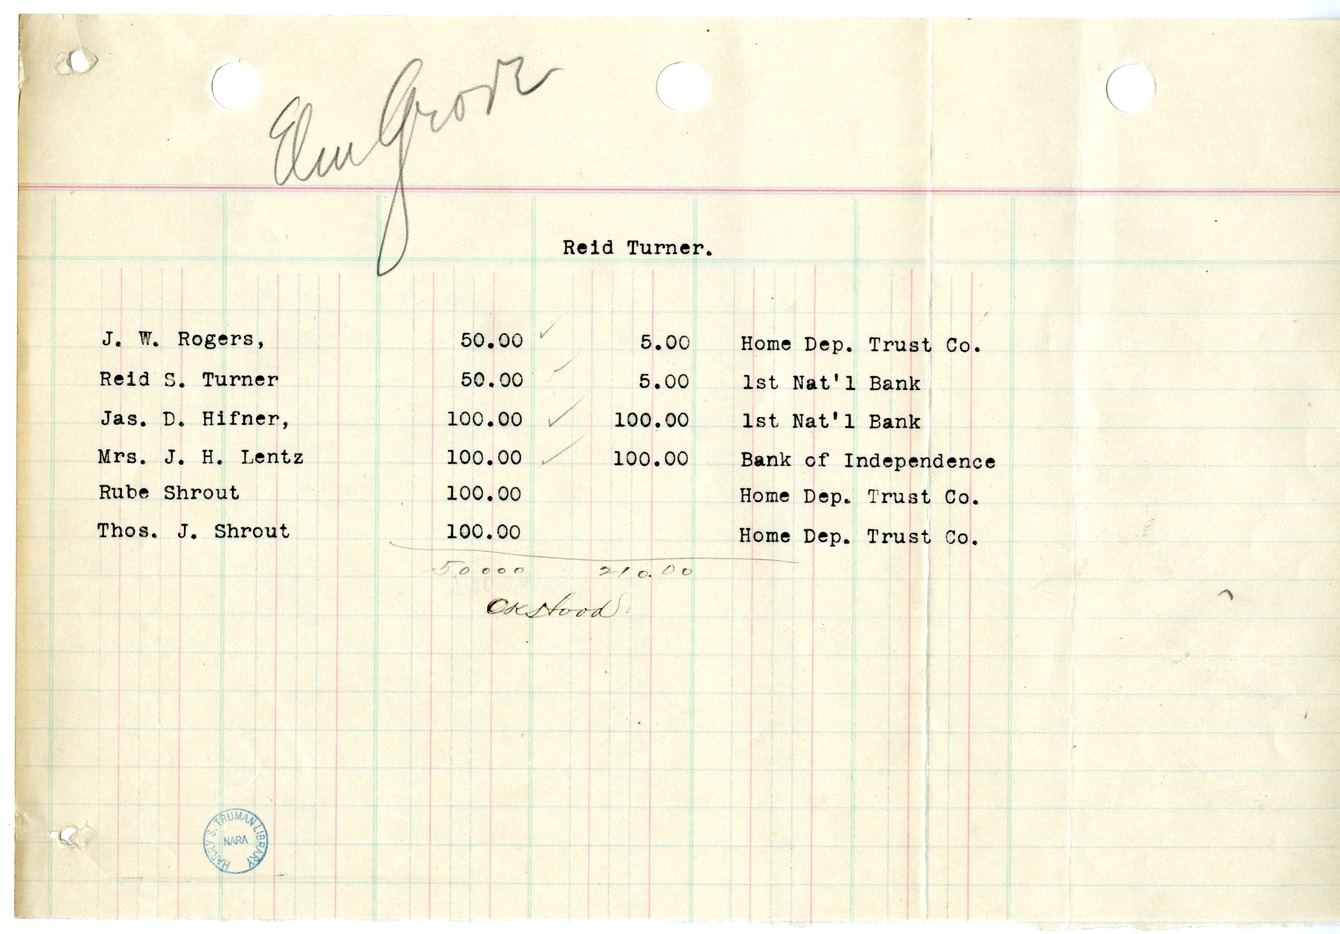 Elm Grove
Reid Turner.
J. W. Rogers, 50.00 ✓ 5.00 Home Dep. Trust Co.
Reid S. Turner 50.00 ✓ 5.00 1st Nat'l Bank
Jas. D. Hifner, 100.00 ✓ 100.00 1st Nat'l Bank
Mrs. J. H. Lentz 100.00 ✓ 100.00 Bank of Independence
Rube Shrout 100.00 Home Dep. Trust Co.
Thos. J. Shrout 100.00 Home Dep. Trust Co.
50000 210.00
HARRY S. TRUMAN LIBRARY
NARA